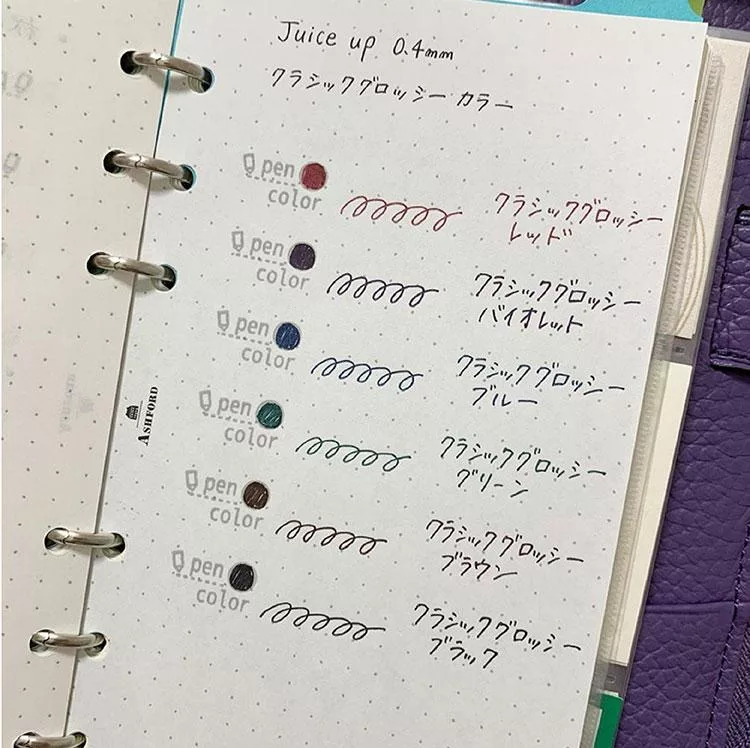 Juice up 0.4mm
クラシックグロッシーカラー
pen
color
クラシックグロッシー
レッド
pen
color
クラシックグロッシー
バイオレット
pen
color
クラシックグロッシー
ブルー
pen
color
クラシックグロッシー
グリーン
pen
color
クラシックグロッシー
ブラウン
pen
color
クラシックグロッシー
ブラック
ASHFORD